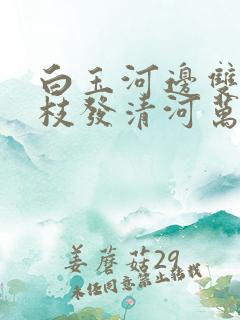 白玉河邊雙
枝發清河萬
姜蘑菇29
未经同意禁止转载